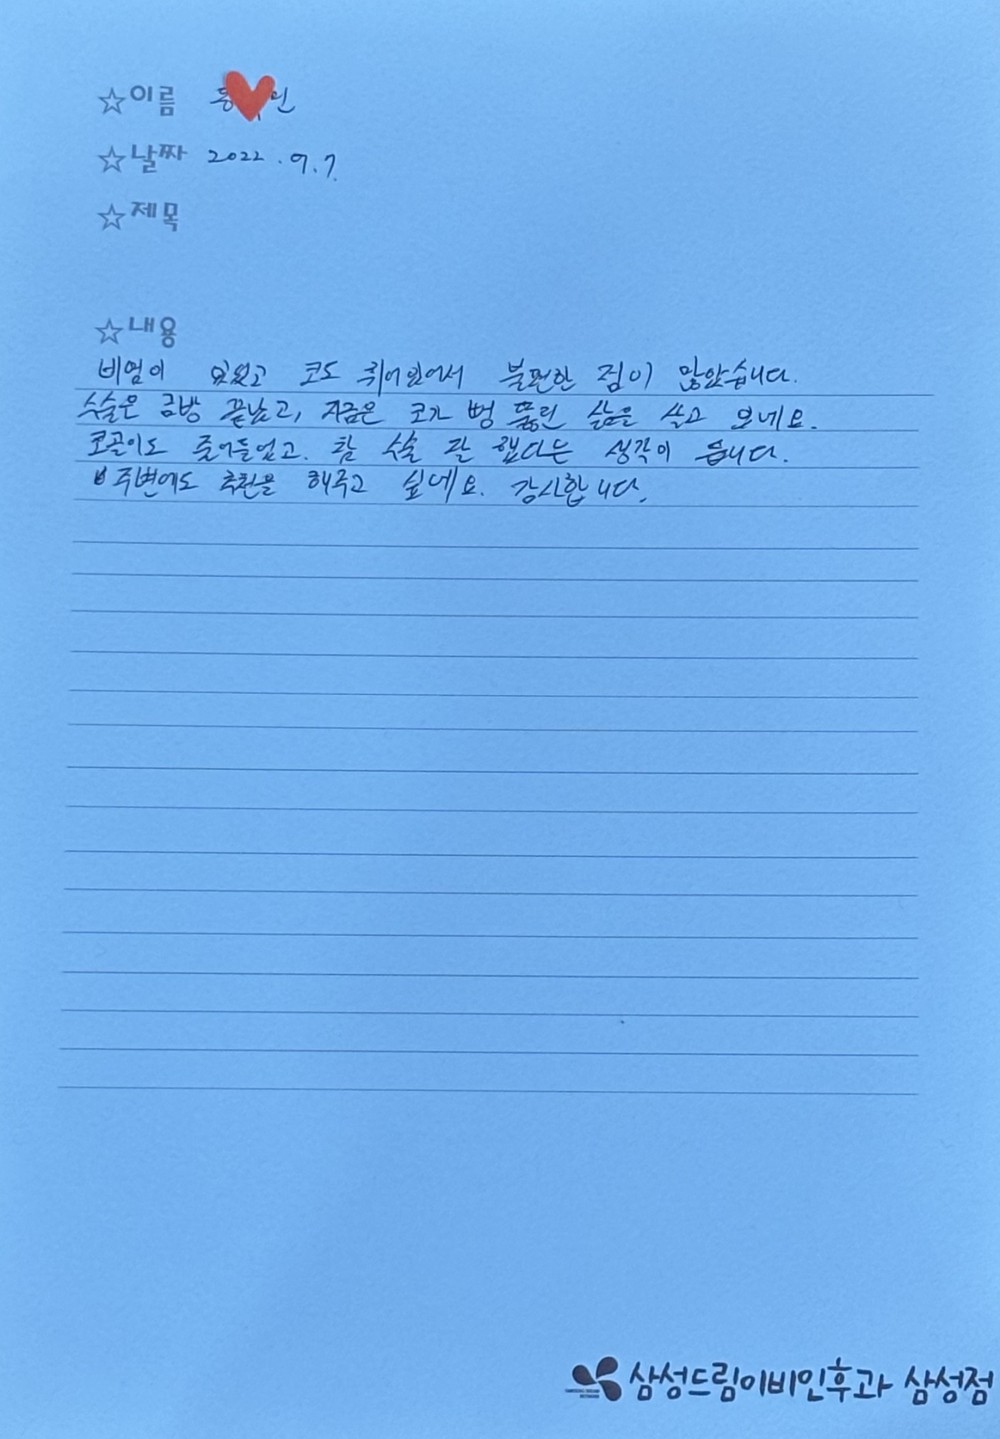 ☆이름 동 인
☆날짜 2022. 9. 7.
☆제목
☆내용
비염이 있었고 코도 휘어있어서 불편한 점이 많았습니다.
수술은 금방 끝났고, 지금은 코가 뻥 뚫린 삶을 살고 보네요.
코골이도 줄어들었고. 참 수술 잘 했다는 생각이 듭니다.
주변에도 추천을 해주고 싶네요. 감사합니다.
삼성드림이비인후과 삼성점